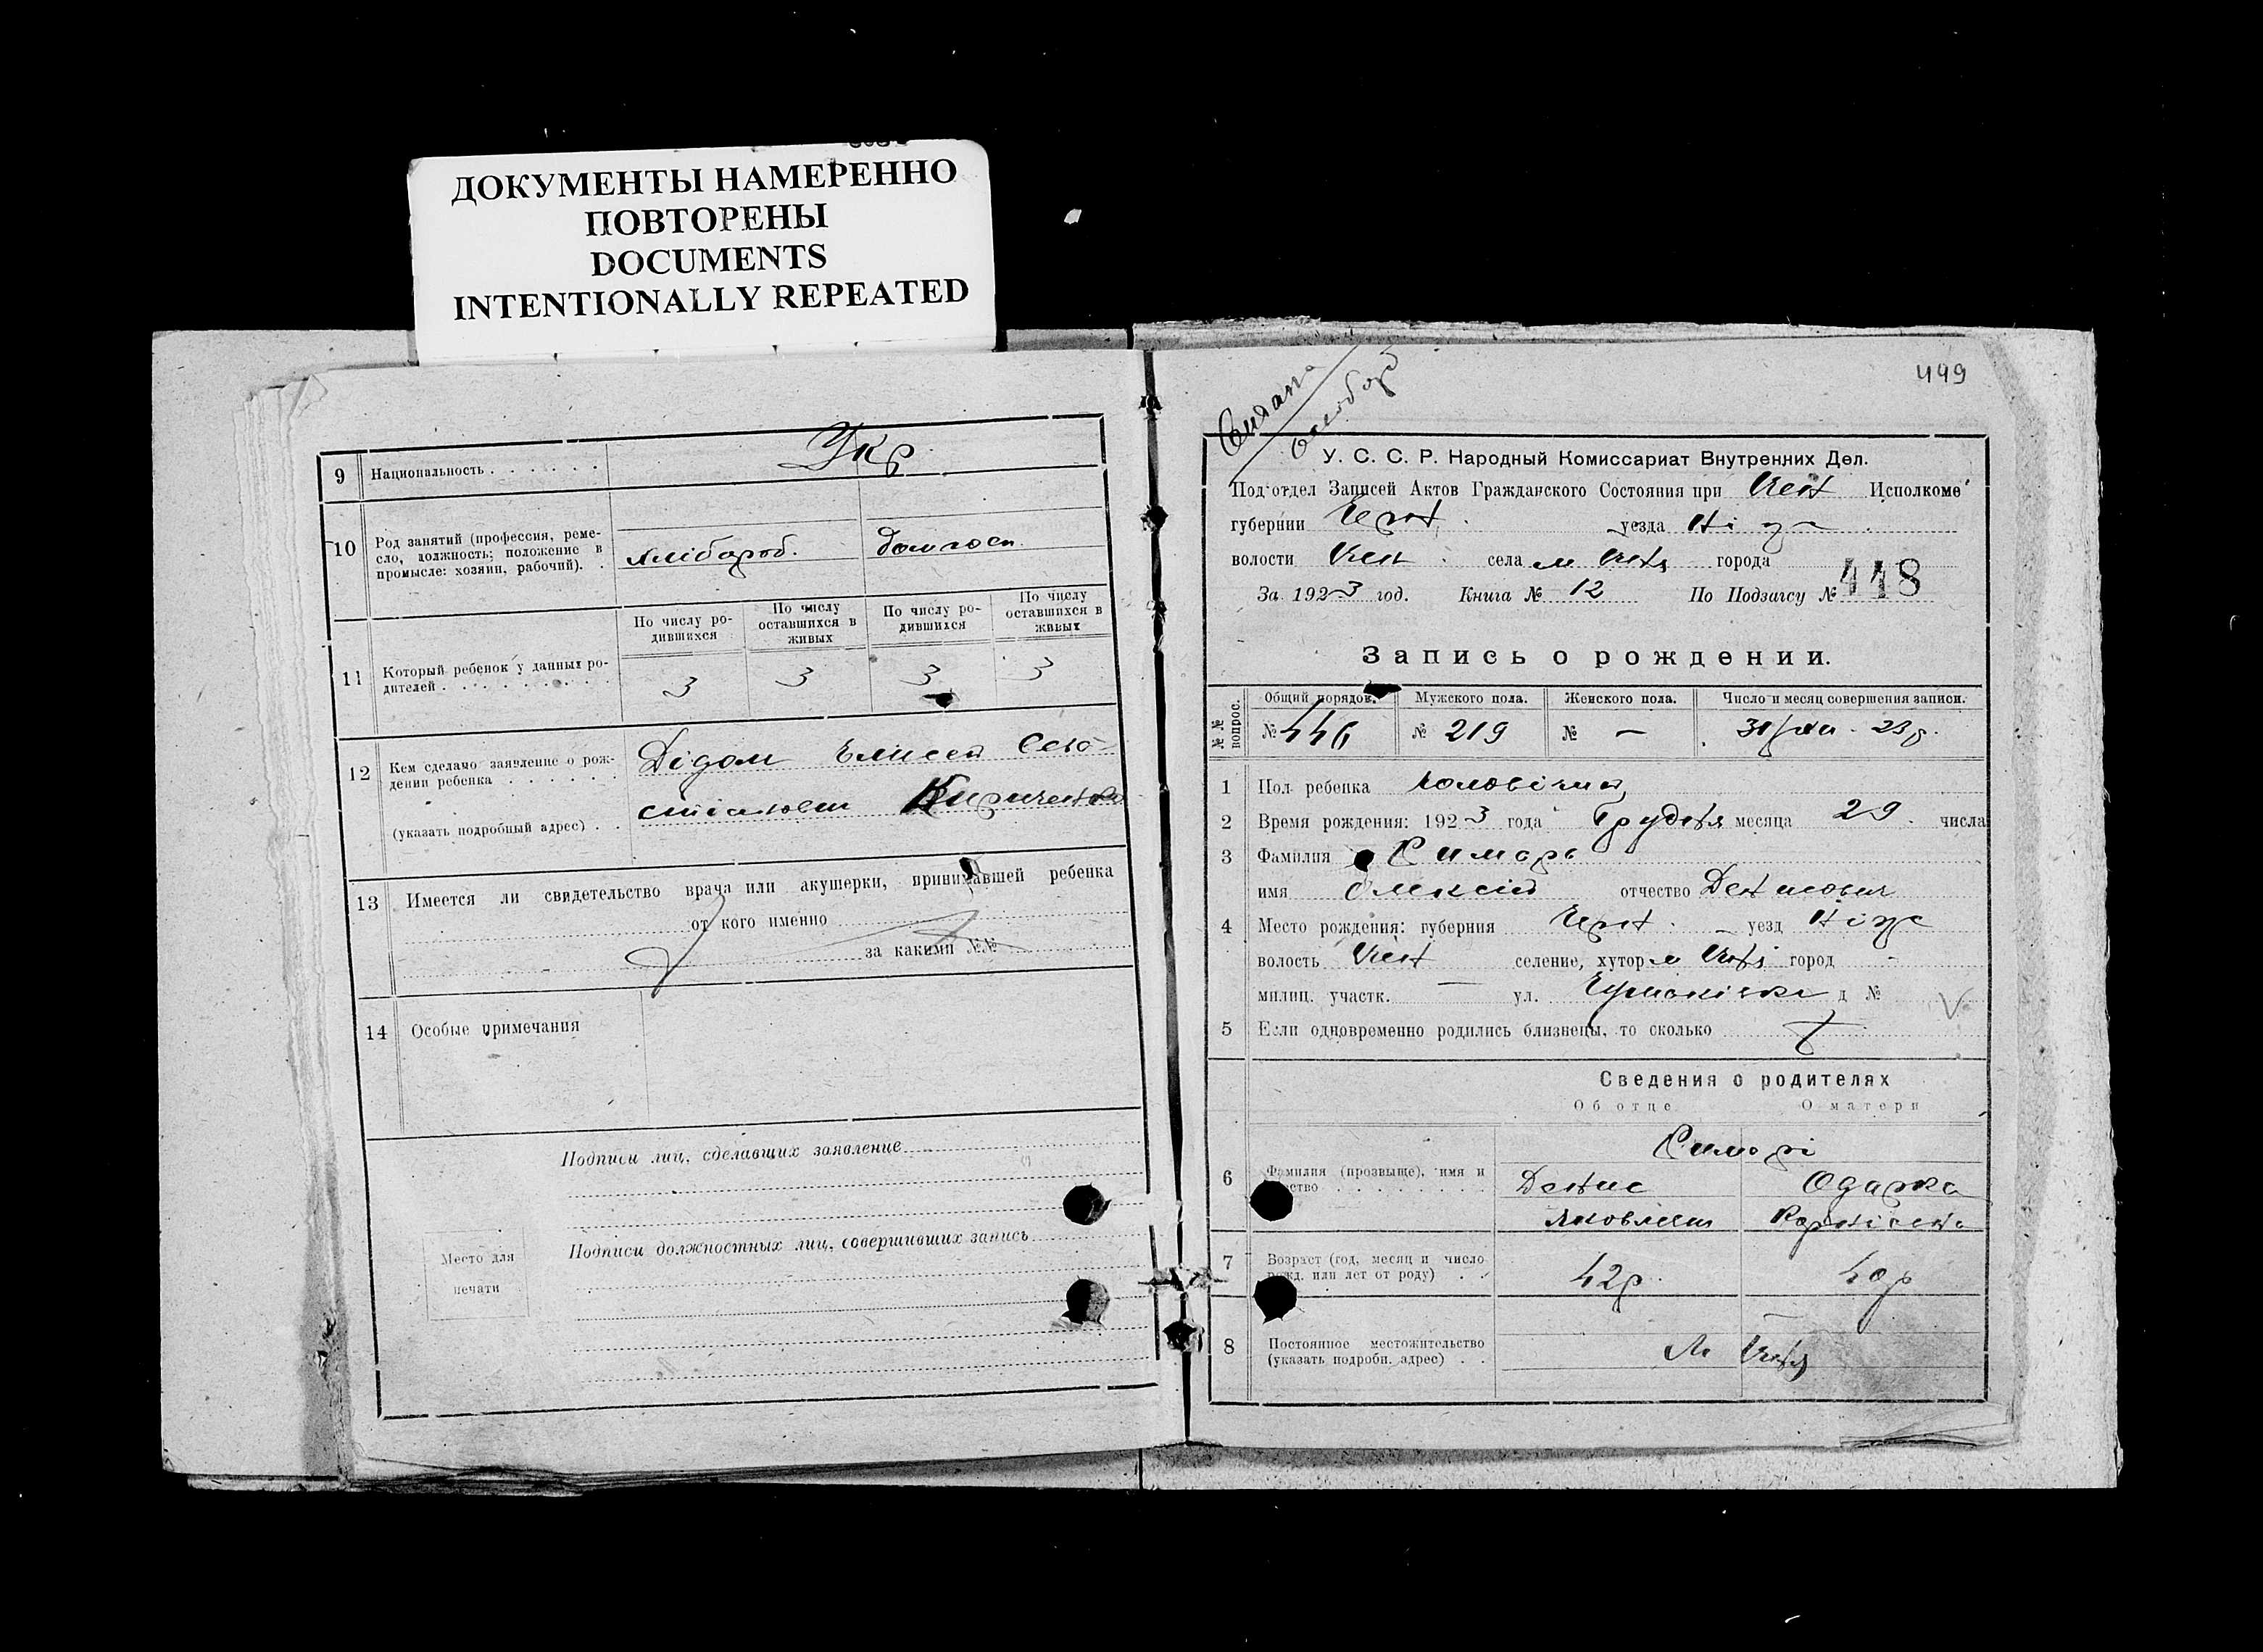 ДОКУМЕНТЫ НАМЕРЕННО
ПОВТОРЕНЫ
DOCUMENTS
INTENTIONALLY REPEATED
9 Национальность . . . . . . Укр
10 Род занятий (профессия, реме-
сло, должность; положение в
промысле: хозяин, рабочий). . хлібороб. домгосп.
По числу ро-
дившихся
По числу
оставшихся в
живых
По числу ро-
дившихся
По числу
оставшихся в
живых
11 Который ребенок у данных ро-
дителей . . . . . . . . . 3 3 3 3
12 Кем сделано заявление о рож-
дении ребенка . . . . . . Дідом Єлисей
(указать подробный адрес) . . Кириченко
13 Имеется ли свидетельство врача или акушерки, принимавшей ребенка
от кого именно
за какими №№
14 Особые примечания
Подписи лиц, сделавших заявление
Подписи должностных лиц, совершивших запись
Место для
печати
449
У. С. С. Р. Народный Комиссариат Внутренних Дел.
Под'отдел Записей Актов Гражданского Состояния при Исполкоме
губернии Черн. уезда Ніж
волости села м города
За 1923 год. Книга № 12 По Подзагсу № 448
Запись о рождении.
№№ вопрос. Общий порядов. Мужского пола. Женского пола. Число и месяц совершения записи.
№ 446 № 219 № — 31/XII - 23 р.
1 Пол ребенка чоловічий
2 Время рождения: 1923 года Грудня месяца 29 числа
3 Фамилия Симорь
имя Олексій отчество Денисович
4 Место рождения: губерния Черн. уезд Ніж
волость селение, хутор м город -
милиц. участк. — ул. д №
5 Если одновременно родились близнецы, то сколько
Сведения о родителях
Об отце О матери
Симорі
6 Фамилия (прозвыще), имя и
ество . . . . . . . . . Денис Одарка
Яковлевич
7 Возраст (год, месяц и число
рожд. или лет от роду) . . 42 р. 40 р
8 Постоянное местожительство
(указать подробн. адрес) . . М